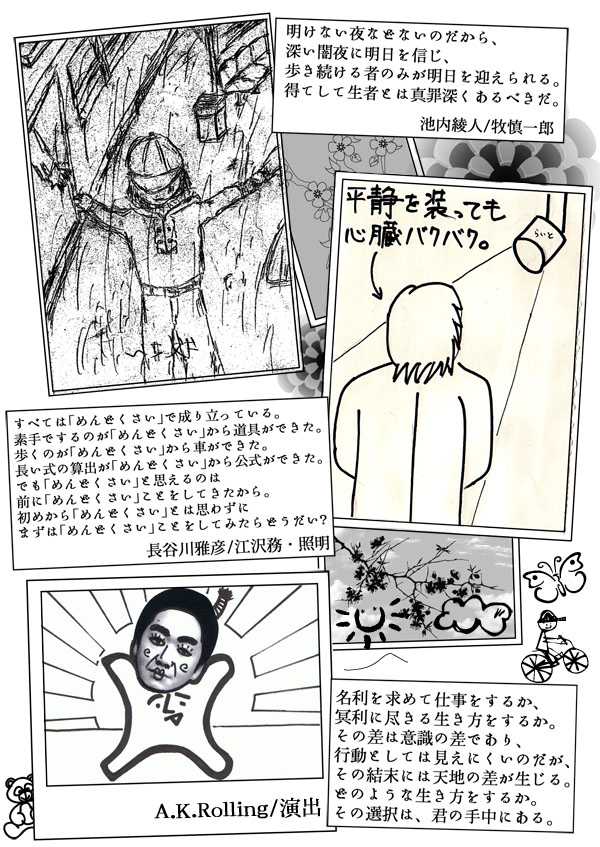 明けない夜などないのだから、
深い闇夜に明日を信じ、
歩き続ける者のみが明日を迎えられる。
得てして生者とは真罪深くあるべきだ。
池内綾人/牧慎一郎
平静を装っても
心臓バクバク。
らいと
すべては「めんどくさい」で成り立っている。
素手でするのが「めんどくさい」から道具ができた。
歩くのが「めんどくさい」から車ができた。
長い式の算出が「めんどくさい」から公式ができた。
でも「めんどくさい」と思えるのは
前に「めんどくさい」ことをしてきたから。
初めから「めんどくさい」とは思わずに
まずは「めんどくさい」ことをしてみたらどうだい?
長谷川雅彦/江沢務・照明
A.K.Rolling/演出
名利を求めて仕事をするか、
冥利に尽きる生き方をするか。
その差は意識の差であり、
行動としては見えにくいのだが、
その結末には天地の差が生じる。
どのような生き方をするか。
その選択は、君の手中にある。